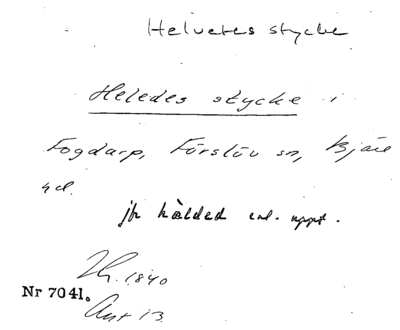 Helvetes stycke
Heledes stycke i
Fogdarp, Förslöv sn, Bjäre
hd.
jfr hälded enl. uppt.
1840
Nr 7041.
Akt 13